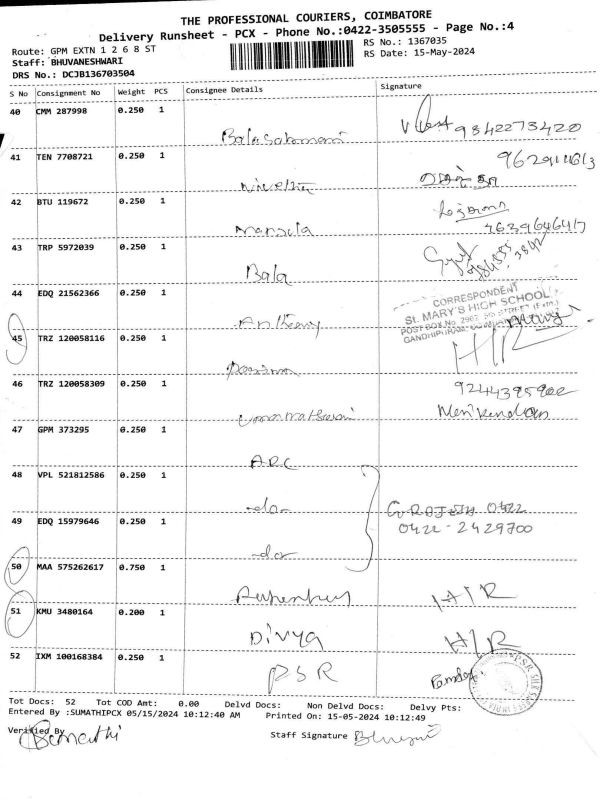 THE PROFESSIONAL COURIERS, COIMBATORE
Delivery Runsheet - PCX - Phone No.:0422-3505555 - Page No.:4
Route: GPM EXTN 1 2 6 8 ST
RS No.: 1367035
Staff: BHUVANESHWARI
RS Date: 15-May-2024
DRS No.: DCJB136703504
S No Consignment No Weight PCS Consignee Details Signature
40 CMM 287998 0.250 1
9842273420
41 TEN 7708721 0.250 1
42 BTU 119672 0.250 1
Manjula
43 TRP 5972039 0.250 1
Bala
44 EDQ 21562366 0.250 1
Anthony
CORRESPONDENT
St. MARY'S HIGH SCHOOL
45 TRZ 120058116 0.250 1
H/R
46 TRZ 120058309 0.250 1
Manikandan
47 GPM 373295 0.250 1
ARC
48 VPL 521812586 0.250 1
-do-
0422
49 EDQ 15979646 0.250 1
0422-2429700
-do-
50 MAA 575262617 0.750 1
H/R
51 KMU 3480164 0.200 1
Divya H/R
52 IXM 100168384 0.250 1
PSR
Tot Docs: 52 Tot COD Amt: 0.00 Delvd Docs: Non Delvd Docs: Delvy Pts:
Entered By :SUMATHIPCX 05/15/2024 10:12:40 AM Printed On: 15-05-2024 10:12:49
Verified By
Staff Signature